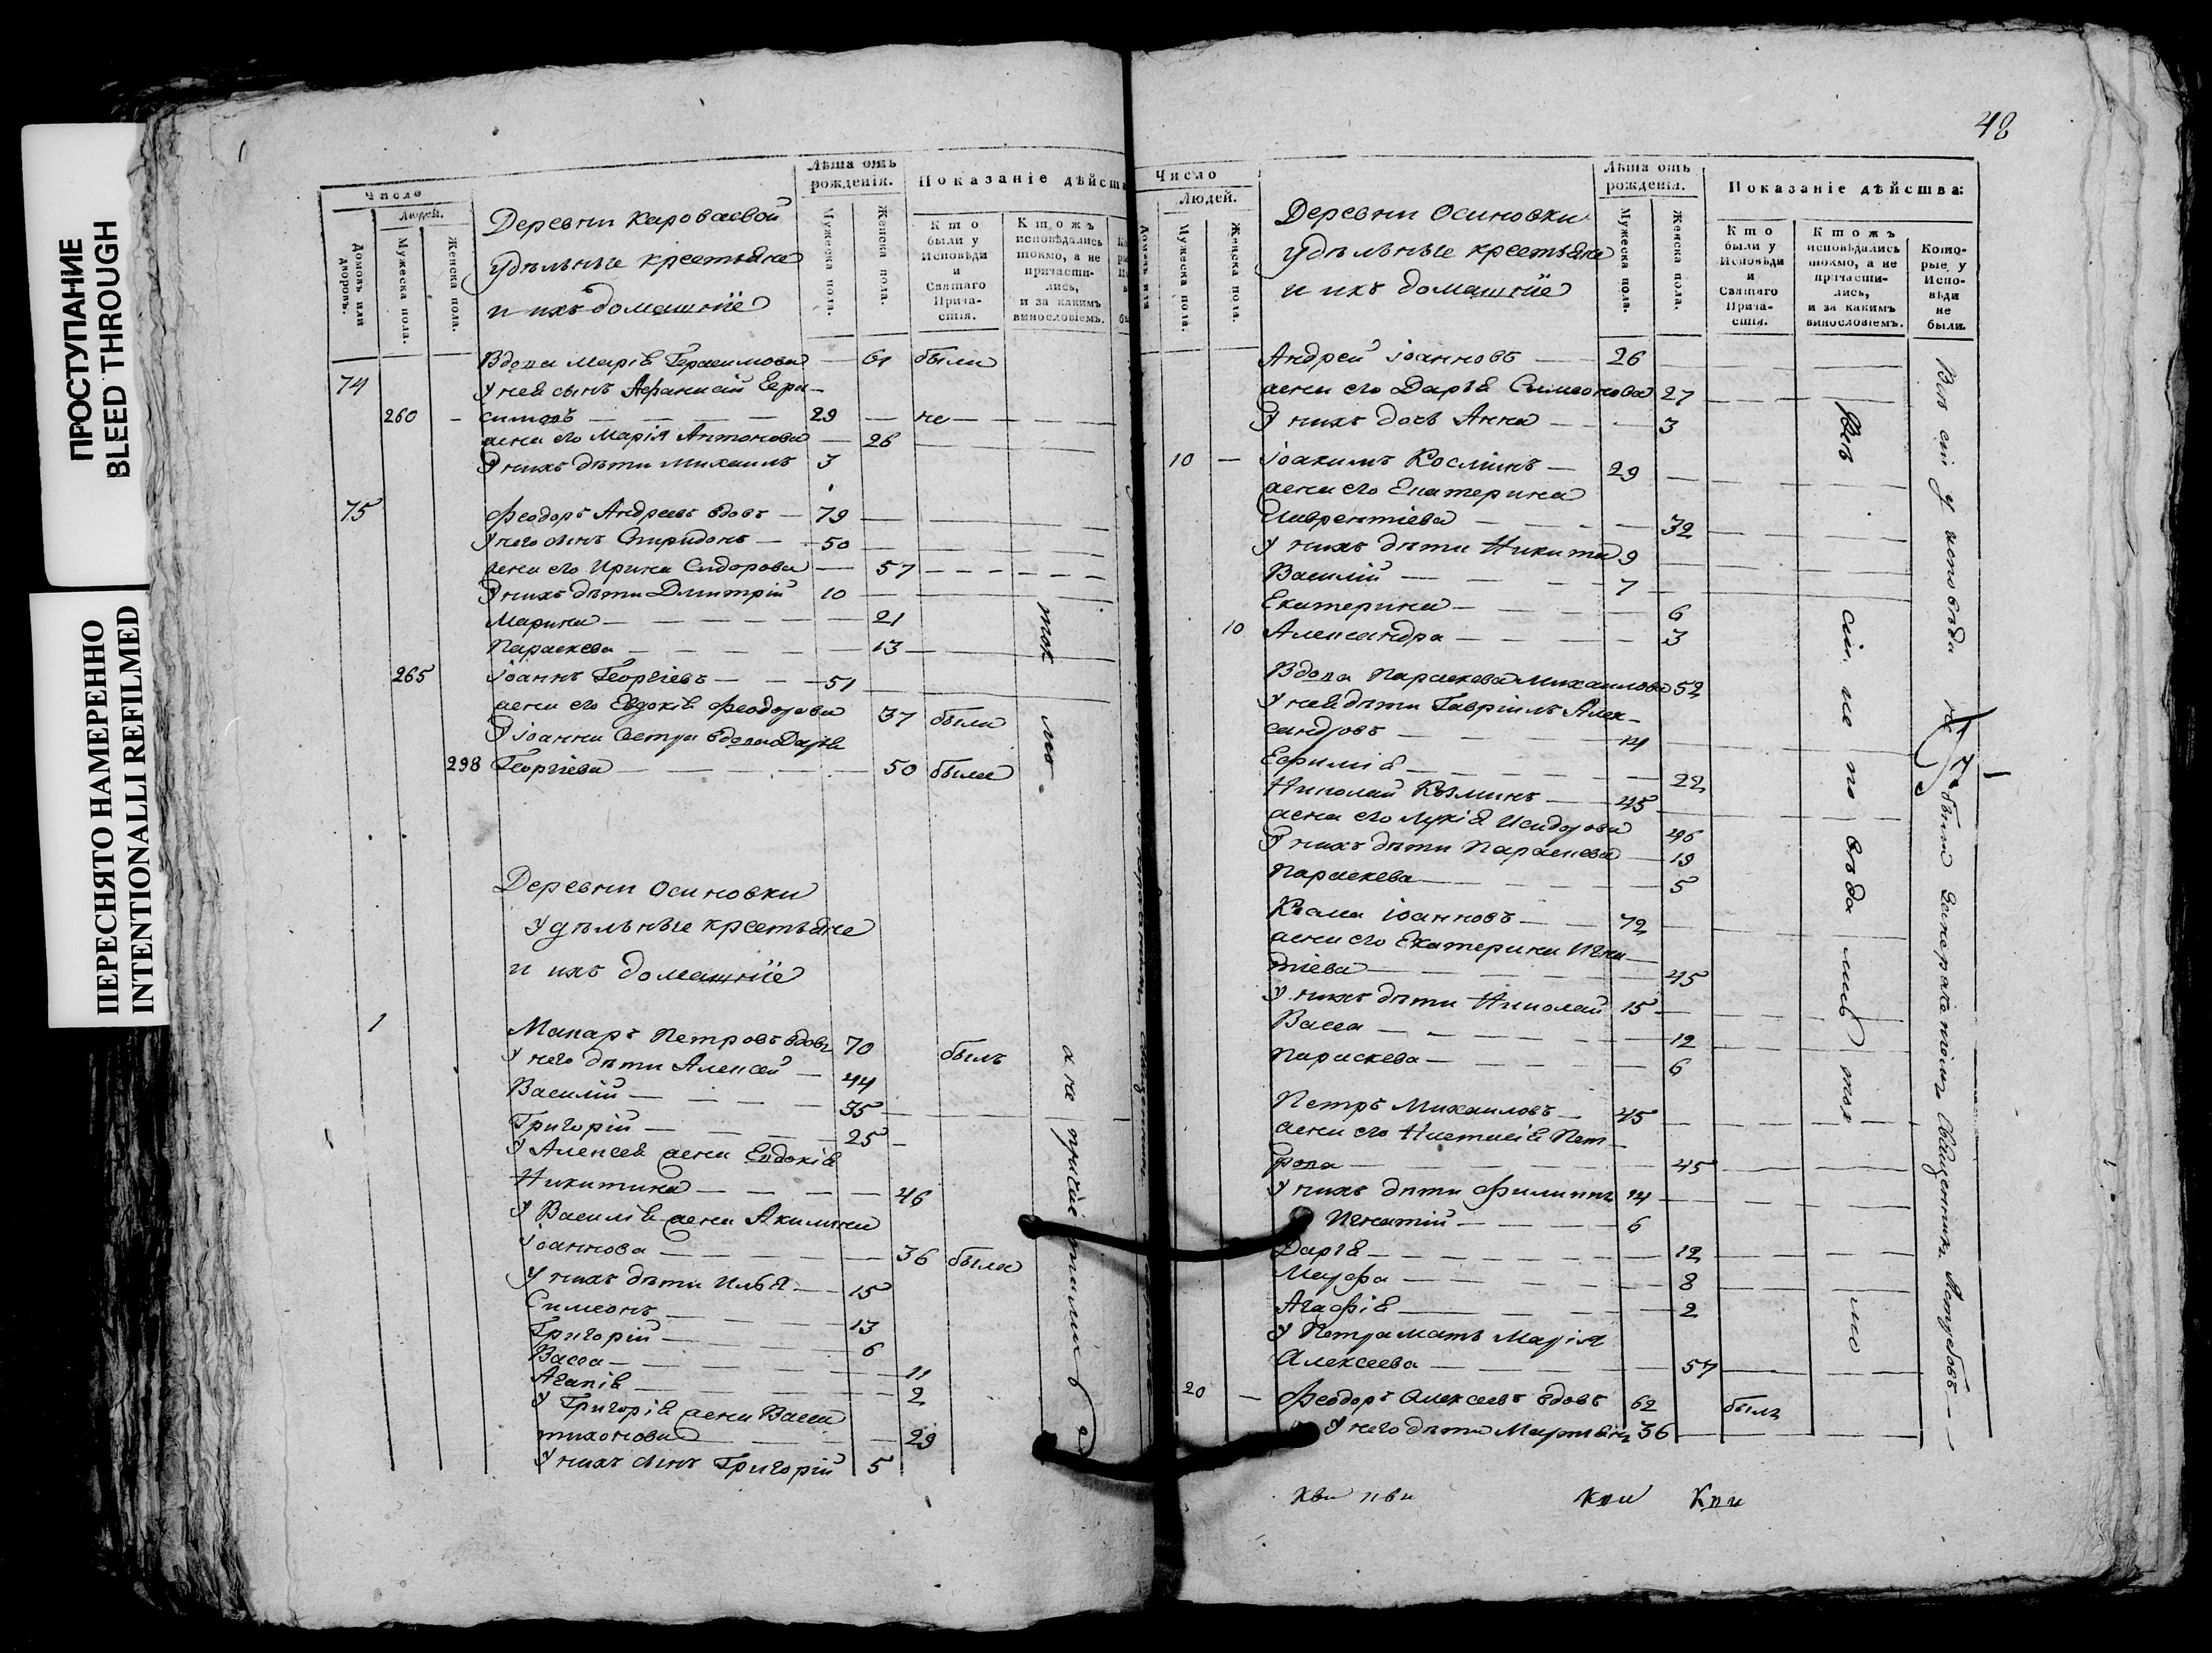 ПРОСТУПАНИЕ
BLEED THROUGH
ПЕРЕСНЯТО НАМЕРЕННО
INTENTIONALLI REFILMED
Число
Людей.
Домовъ или дворовъ.
Мужеска пола.
Женска пола.
Деревни Кароваевой
удѣльные крестьяне
и ихъ домашніе
Лѣта отъ рожденія.
Мужеска пола.
Женска пола.
Показаніе дѣйств
Кто были у Исповѣди и Святаго Причастія.
Ктожъ исповѣдались токмо, а не причастились, и за какимъ винословіемъ.
Вдова Марія Герасимова — 61 были
74 У нея сынъ Афанасій Гера-
260 — симовъ — 29 — не —
жена его Марія Антонова — 26
У нихъ дѣти Михаилъ 3
75 Феодоръ Андреевъ вдовъ — 79
У него сынъ Спиридонъ — 50
жена его Ирина Сидорова — 57
У нихъ дѣти Дмитрій 10
Марина — 21
Параскева — 13
265 Іоаннъ Георгіевъ — 51
жена его Евдокія Феодорова 37 была
У Іоанна сестра вдова Дарья
298 Георгіева — 50 была
Деревни Осиновки
удѣльные крестьяне
и ихъ домашніе
1 Макаръ Петровъ вдовъ 70 былъ
У него дѣти Алексей — 44
Василій — 35
Григорій — 25
У Алексея жена Евдокія
Никитина — 46
У Василія жена Акилина
Іоаннова — 36 была
У нихъ дѣти Илья — 15
Симеонъ — 13
Григорій — 6
Васса — 11
Агапія — 2
У Григорія жена Васса
Тихонова — 29
У нихъ сынъ Григорій 5
48
Число
Людей.
Мужеска пола.
Женска пола.
Деревни Осиновки
удѣльные крестьяне
и ихъ домашніе
Лѣта отъ рожденія.
Мужеска пола.
Женска пола.
Показаніе дѣйства:
Кто были у Исповѣди и Святаго Причастія.
Ктожъ исповѣдались токмо, а не причастились, и за какимъ винословіемъ.
Которые у Исповѣди не были.
Андрей Іоанновъ — 26
жена его Дарья Симеонова 27
У нихъ дочь Анна — 3
10 — Іоакимъ Косминъ — 29
жена его Екатерина
Лаврентіева — 32
У нихъ дѣти Никита 9
Василій — 7
Екатерина — 6
10 Александра — 3
Вдова Параскева Михаилова 52
У нея дѣти Гавріилъ Алек-
сандровъ — 14
Ефимія — 22
Николай Козминъ — 45
жена его Лукія Исидорова 46
У нихъ дѣти Параскева — 19
Параскева — 5
Козма Іоанновъ — 72
жена его Екатерина Игна-
тіева — 45
У нихъ дѣти Николай 15
Васса — 12
Параскева — 6
Петръ Михаиловъ — 45
жена его Анастасія Пет-
рова — 45
У нихъ дѣти Филиппъ 14
Игнатій — 6
Дарья — 12
Марфа — 8
Агафія — 2
У Петра мать Марія
Алексеева — 57
20 — Феодоръ Алексеевъ вдовъ 62 былъ
У него дѣти Мартынъ 36
Всѣ сіи у исповѣди не были